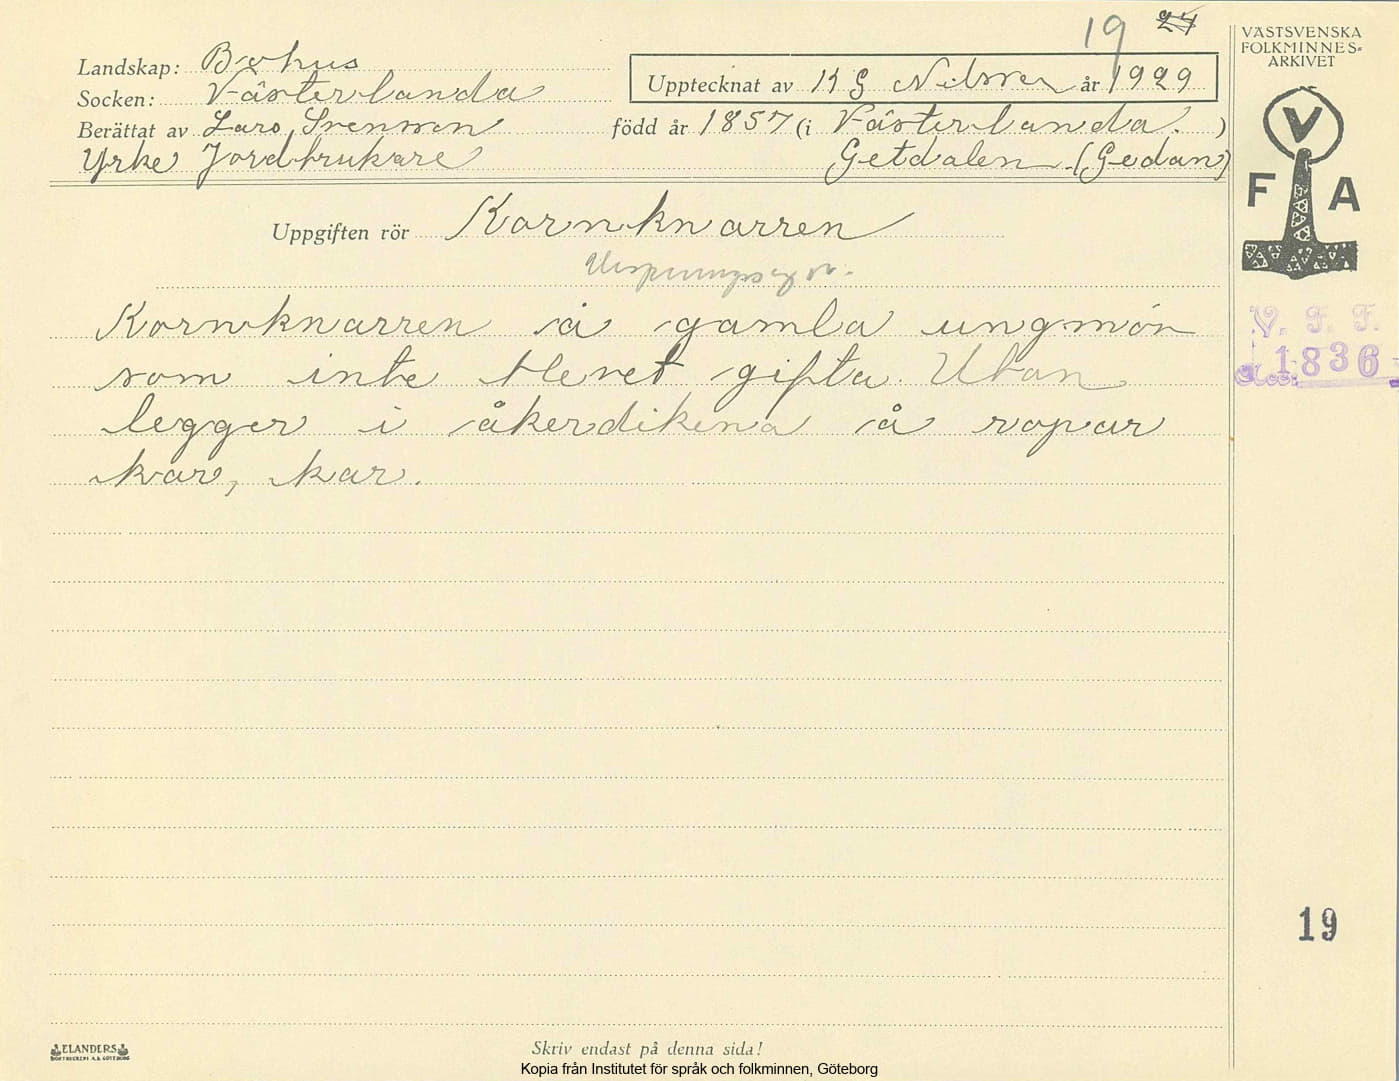 19 24
VÄSTSVENSKA
FOLKMINNES-
ARKIVET
Landskap: Bohus
Upptecknat av K G Nilsson år 1929
Socken: Västerlanda
Berättat av Lars Svensson född år 1857 (i Västerlanda. )
Yrke Jordbrukare Getdalen (Gedan)
V
F A
Uppgiften rör Kornknarren
Kornknarren är gamla ungmör
som inte blevet gifta. Utan
legger i åkerdikena å ropar
kar, kar.
V. F. F.
Acc: 1836
19
ELANDERS
BOKTRYCKERI A.B. GÖTEBORG
Skriv endast på denna sida!
Kopia från Institutet för språk och folkminnen, Göteborg